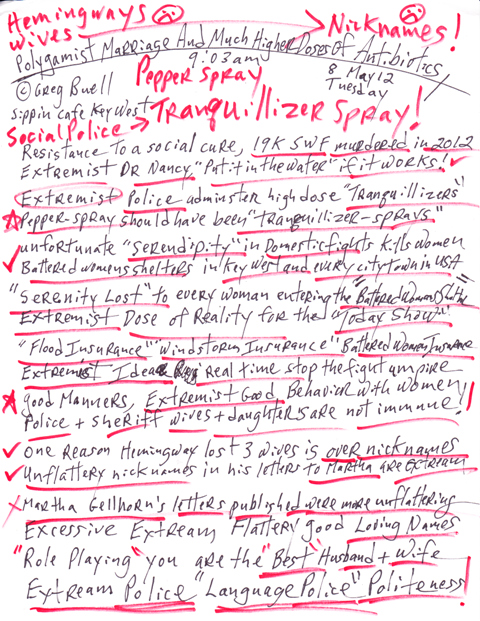 Hemingways
Wives
Nicknames!
Polygamist Marriage And Much Higher Doses Of Antibiotics
9:03am
© Greg Buell
Pepper Spray
8 May 12
Tuesday
Sippin cafe Key West
Tranquillizer Spray!
Social Police
Resistance to a social cure, 19K SWF murdered in 2012
Extremist DR Nancy, "Put it in the water" if it works!
Extremist Police adminster high dose "Tranquillizers"
Pepper-spray should have been "tranquillizer-sprays."
unfortunate "Serendipity" in Domestic fights kills women
Battered womens shelters in Key West and every city town in USA
"Serenity Lost" to every woman entering the "Battered Woman Shelter"
Extremist Dose of Reality for the "Today Show"
"Flood Insurance" "Windstorm Insurance" Battered Women Insurance
Extremist Idea real time stop the fight umpire
good Manners, Extremist Good Behavior with women
Police + Sheriff wives + daughters are not immune!!
One Reason Hemingway lost 3 wives is over nicknames
Unflattery nicknames in his letters to Martha are extream
Martha Gellhorn's letters published were more unflattering
Excessive Extream Flattery good Loving Names
"Role Playing" you are the "Best" Husband + Wife
Extream Police "Language Police" Politeness!